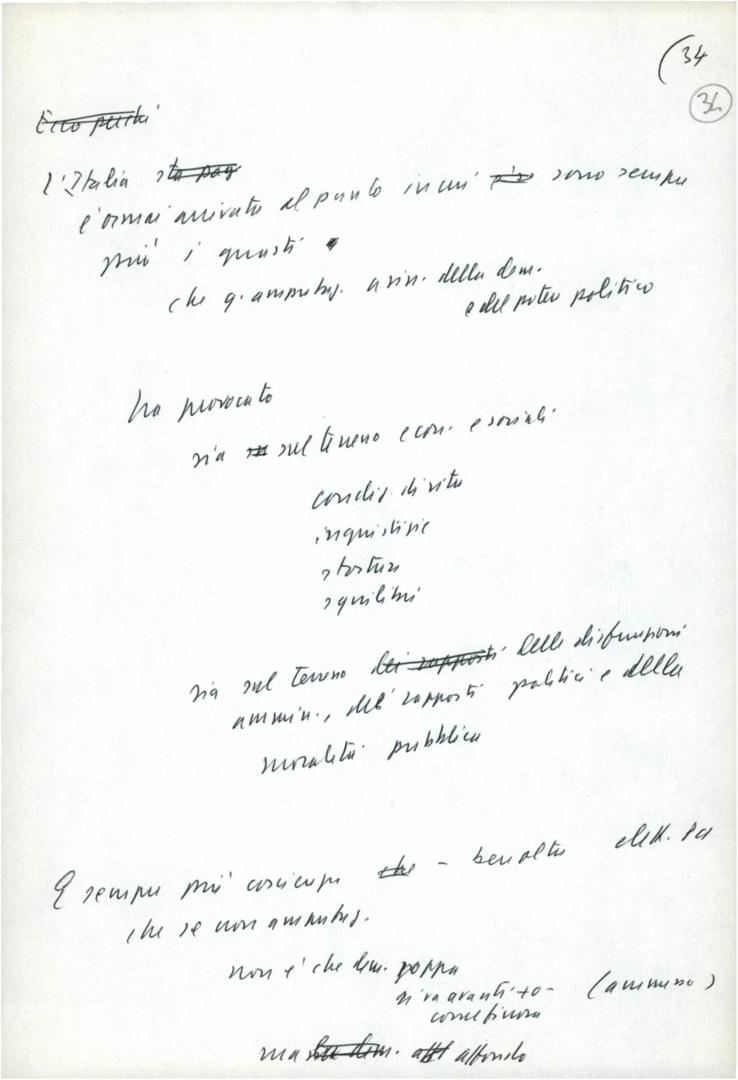 (34
34
Ecco perché
l'Italia sta pag
è ormai arrivata al punto in cui più sono sempre
più i guasti
che q. amputaz. a sin. della dem.
e del potere politico
ha provocato
sia sul terreno econ. e sociali
condiz. di vita
ingiustizie
storture
squilibri
sia sul terreno dei rapporti delle disfunzioni
ammin., dei rapporti politici e della
moralità pubblica
E sempre più coscienza che - ben oltre elett. PCI
che se non amputaz.
non è che dem. zoppa
si va avanti + o - (ammesso)
come finora
ma la dem. affondo